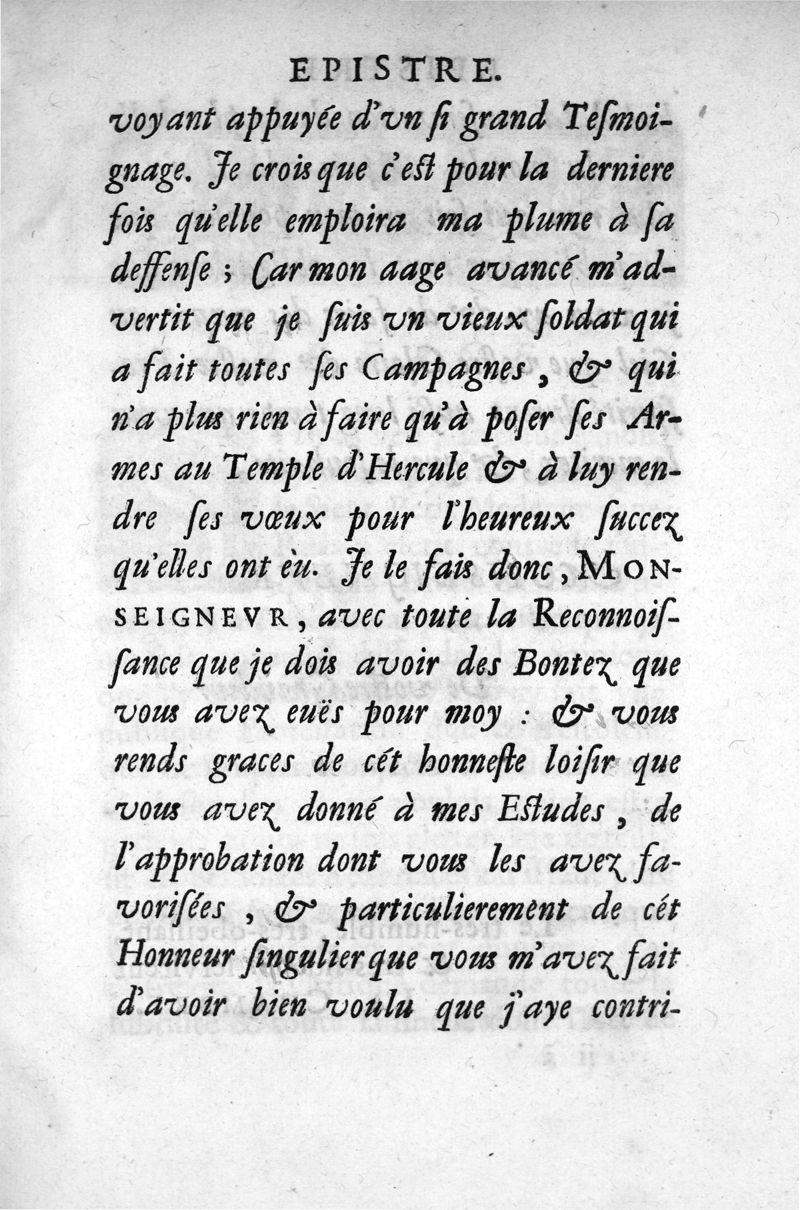 EPISTRE.
voyant appuyée d'vn ſi grand Teſmoi-
gnage. Je crois que c'eſt pour la derniere
fois qu'elle emploira ma plume à ſa
deffenſe ; Car mon aage avancé m'ad-
vertit que je ſuis vn vieux ſoldat qui
a fait toutes ſes Campagnes, & qui
n'a plus rien à faire qu'à poſer ſes Ar-
mes au Temple d'Hercule & à luy ren-
dre ſes vœux pour l'heureux ſuccez
qu'elles ont èu. Je le fais donc, MON-
SEIGNEVR, avec toute la Reconnoiſ-
ſance que je dois avoir des Bontez que
vous avez euës pour moy : & vous
rends graces de cét honneſte loiſir que
vous avez donné à mes Eſtudes, de
l'approbation dont vous les avez fa-
voriſées, & particulierement de cét
Honneur ſingulier que vous m'avez fait
d'avoir bien voulu que j'aye contri-